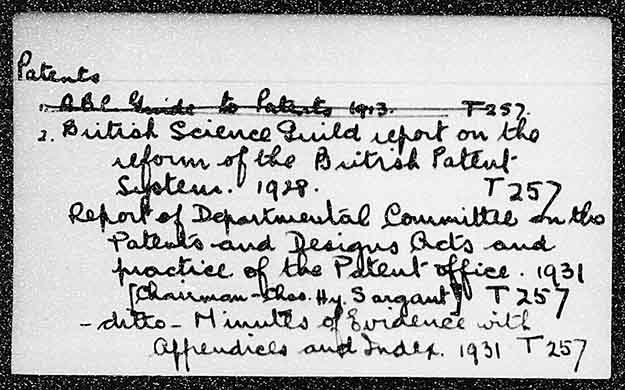 Patents
1. A.B.C. Guide to Patents 1913. T257.
2. British Science Guild report on the
reform of the British Patent
System. 1928. T257
Report of Departmental Committee on the
Patents and Designs Acts and
practice of the Patent office. 1931
[Chairman - Chas. Hy. Sargant] T257
- ditto - Minutes of Evidence with
Appendices and Index. 1931 T257